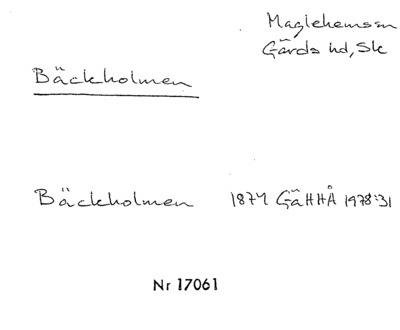 Maglehems sn
Gärds hd, Sk
Bäckholmen
Bäckholmen 1874 GäHHÅ 1978:31
Nr 17061